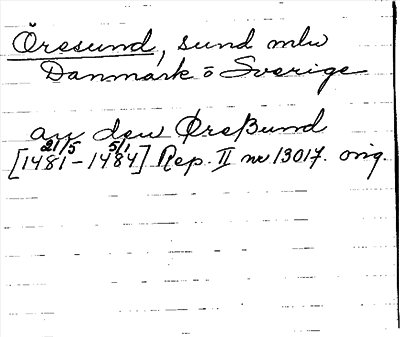 Öresund, sund mlw
Danmark o Sverige
au den Øreßund
21/5 5/1
[1481-1484] Rep. II nr 13017. orig.